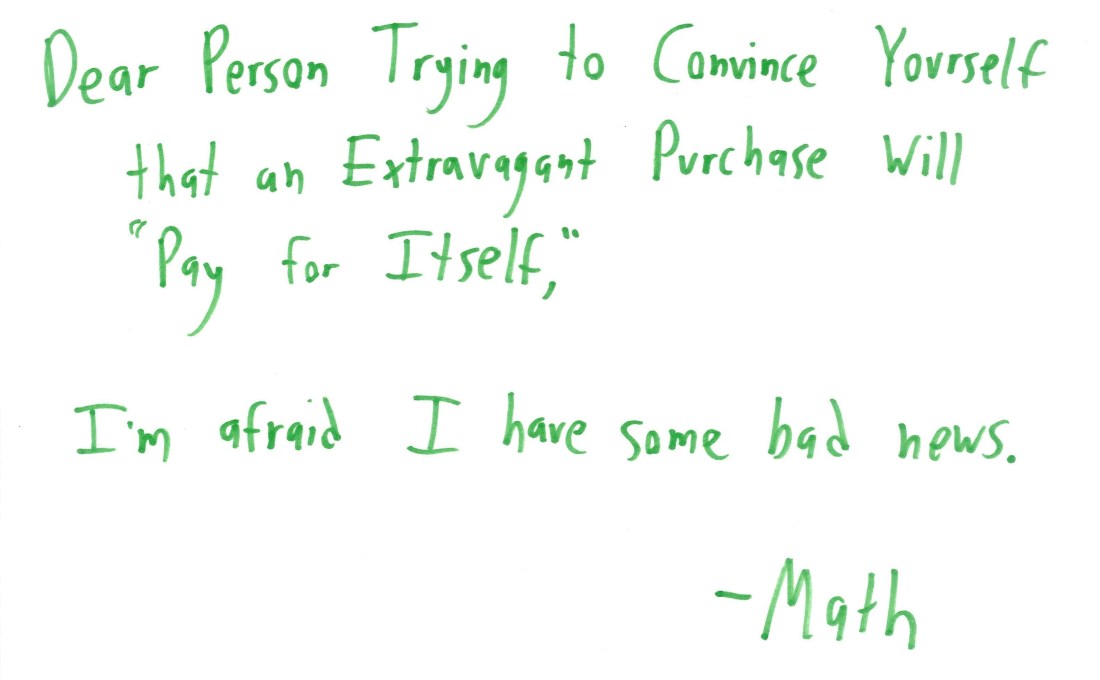 Dear Person Trying to Convince Yourself
that an Extravagant Purchase Will
"Pay for Itself,"
I'm afraid I have some bad news.
-Math